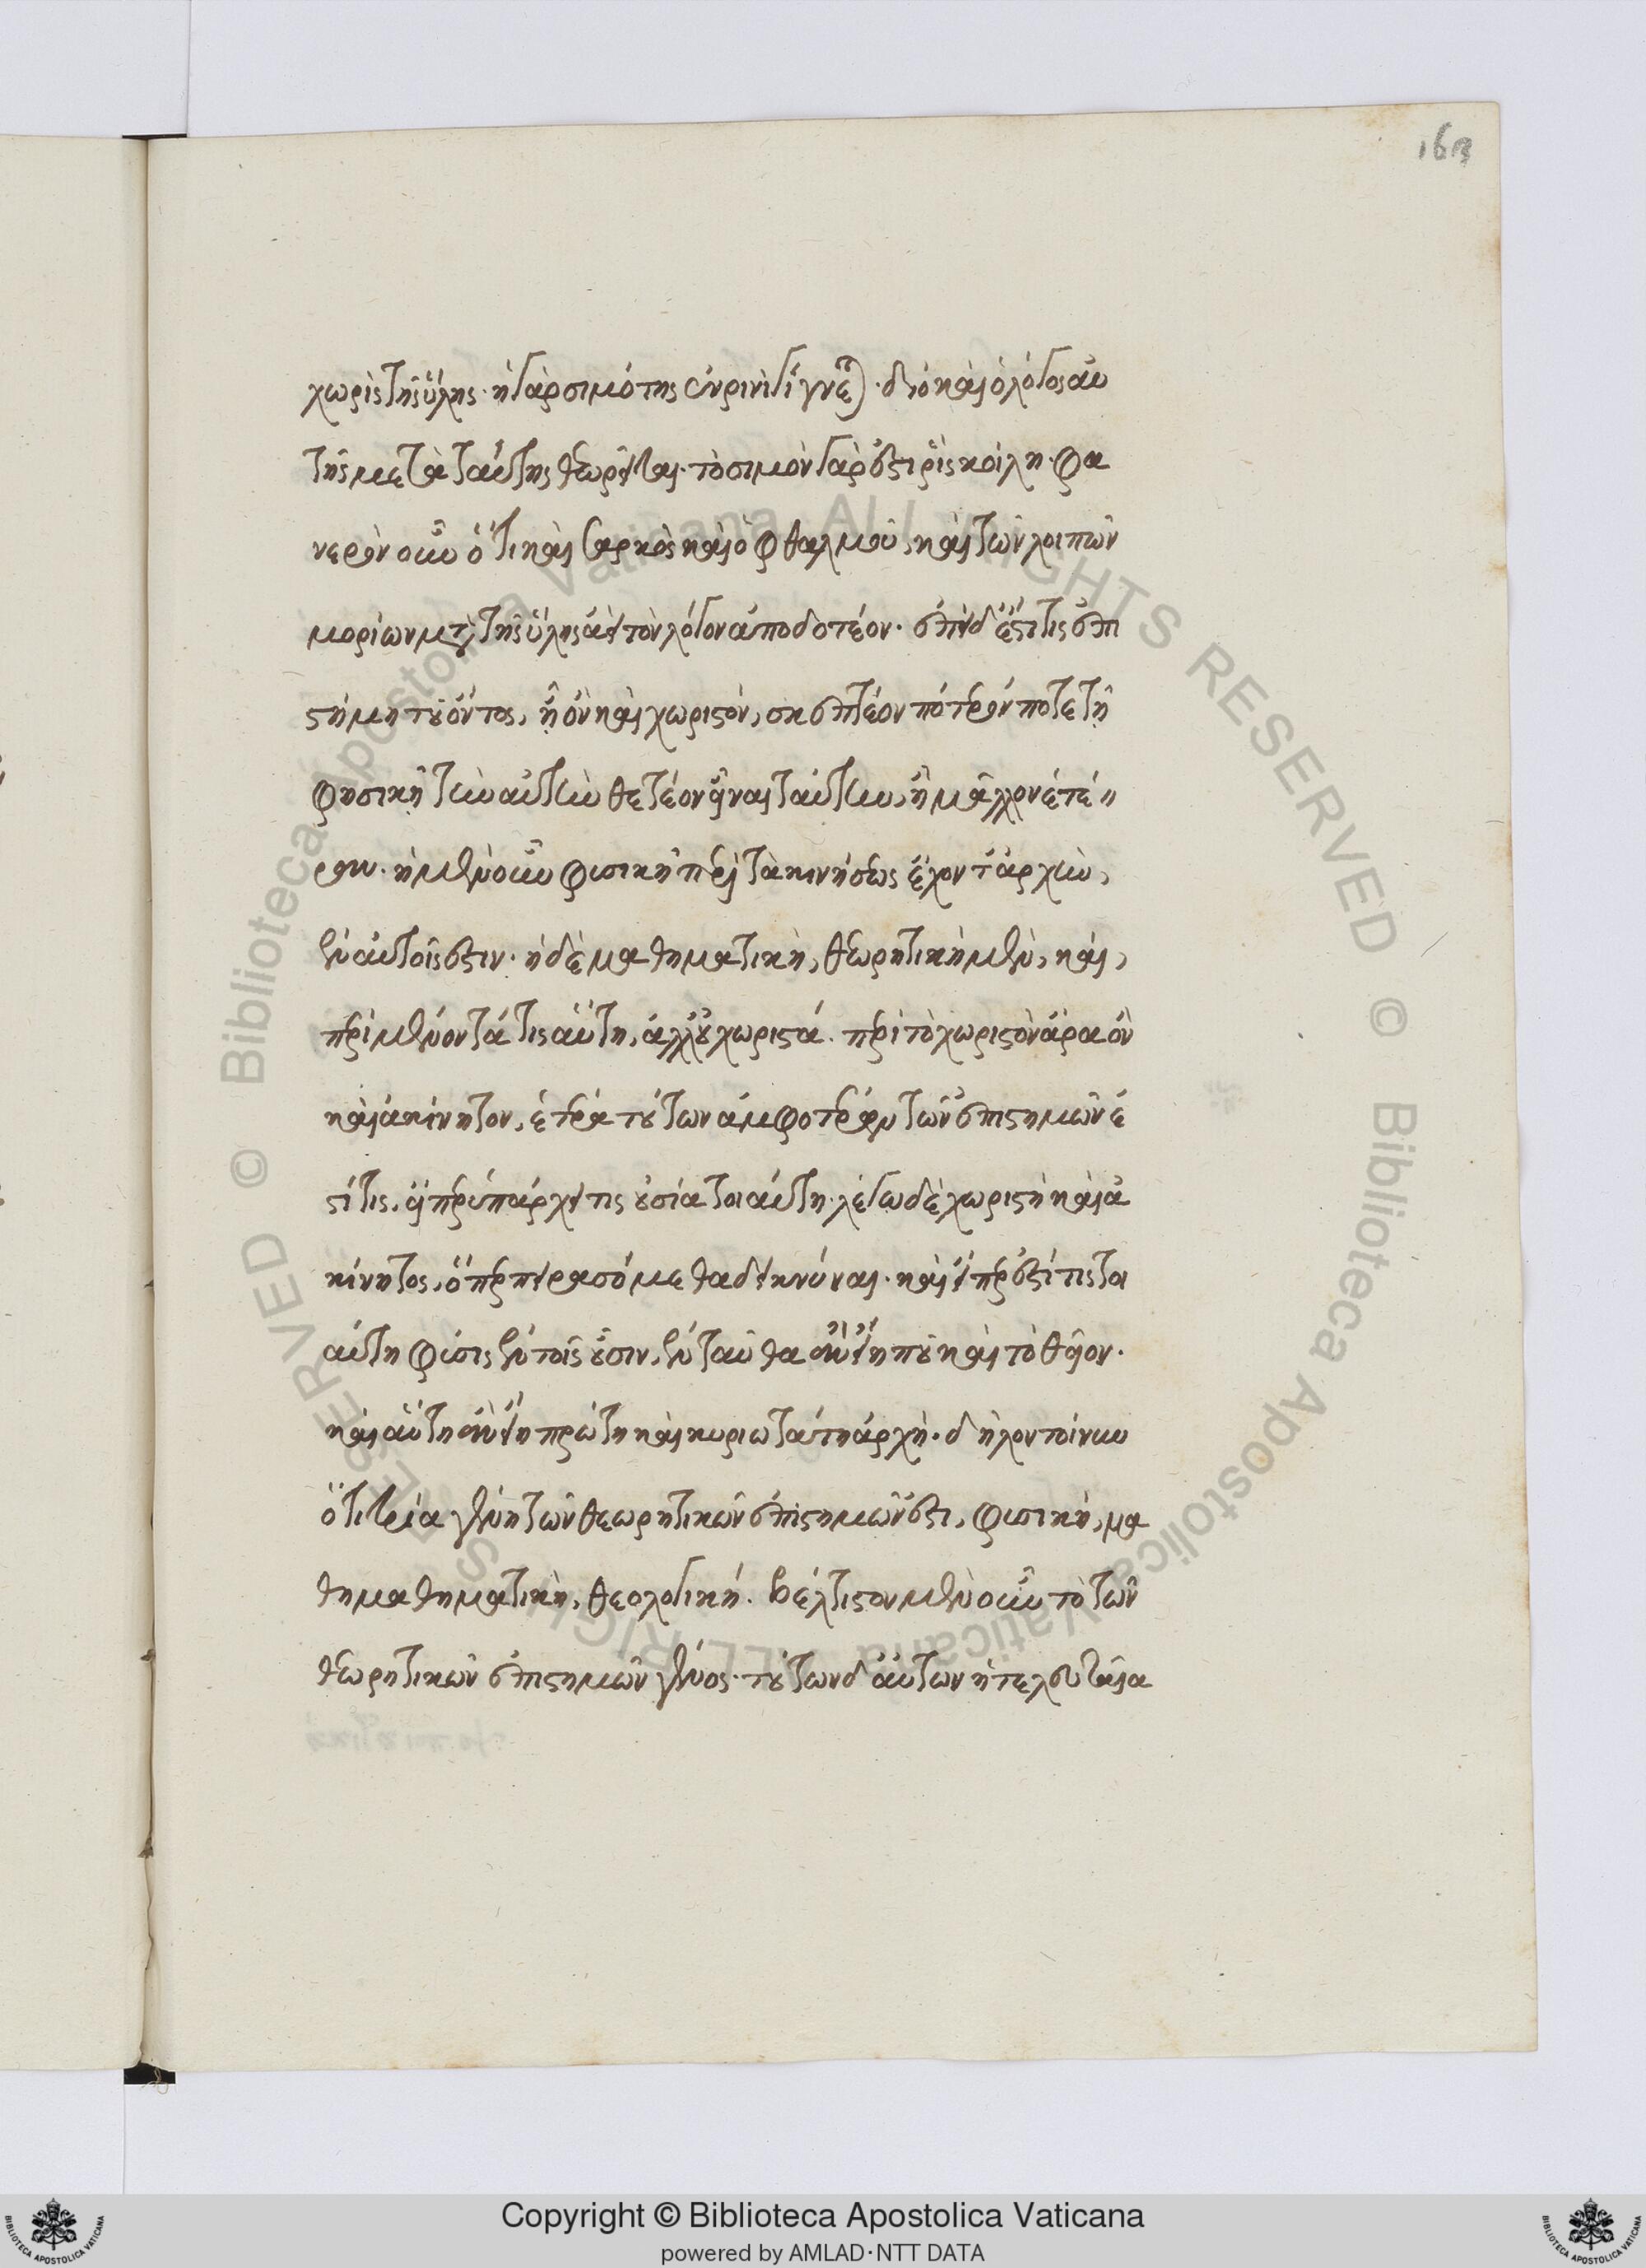 163
χωρὶς τῆς ὕλης· ἡ γὰρ σιμότης ἐν ρινὶ γίγνεται· διὸ καὶ ὁ λόγος αὐ
τῆς μετὰ ταύτης θεωρεῖται· τὸ σιμὸν γὰρ ἐστι ρὶς κοίλη· φα
νερὸν οὖν ὅτι καὶ σαρκὸς καὶ ὀφθαλμοῦ, καὶ τῶν λοιπῶν
μορίων μετὰ τῆς ὕλης ἀεὶ τὸν λόγον ἀποδοτέον· ἐπεὶ δ' ἔστι τις ἐπι
στήμη τοῦ ὄντος, ᾗ ὂν καὶ χωριστόν, σκεπτέον πότερόν ποτε τῇ
φυσικῇ τὴν αὐτὴν θετέον εἶναι ταύτην, ἢ μᾶλλον ἑτέ
ραν. ἡ μὲν οὖν φυσικὴ περὶ τὰ κινήσεως ἔχοντ' ἀρχὴν,
ἐν αὐτοῖς ἐστιν· ἡ δὲ μαθηματικὴ, θεωρητικὴ μὲν, καὶ,
περὶ μένοντά τις αὕτη, ἀλλ' οὐ χωριστά. περὶ τὸ χωριστὸν ἄρα ὂν
καὶ ἀκίνητον, ἑτέρα τούτων ἀμφοτέρων τῶν ἐπιστημῶν ἐ
στί τις, εἴπερ ὑπάρχει τις οὐσία τοιαύτη· λέγω δὲ χωριστὴ καὶ ἀ
κίνητος, ὅπερ πειρασόμεθα δεικνύναι· καὶ εἴπερ ἐστί τις τοι
αύτη φύσις ἐν τοῖς οὖσιν, ἐνταῦθα ἂν εἴη που καὶ τὸ θεῖον.
καὶ αὕτη ἂν εἴη πρώτη καὶ κυριωτάτη ἀρχή· δῆλον τοίνυν
ὅτι τρία γένη τῶν θεωρητικῶν ἐπιστημῶν ἐστι, φυσικὴ, μα
θημαθηματικὴ, θεολογική. βέλτιστον μὲν οὖν τὸ τῶν
θεωρητικῶν ἐπιστημῶν γένος· τούτων δ' αὐτῶν ἡ τελευταῖα
© Biblioteca Apostolica Vaticana ALL RIGHTS RESERVED
© Biblioteca Apostolica Vaticana ALL RIGHTS RESERVED
Copyright © Biblioteca Apostolica Vaticana
powered by AMLAD·NTT DATA
BIBLIOTECA APOSTOLICA VATICANA
BIBLIOTECA APOSTOLICA VATICANA